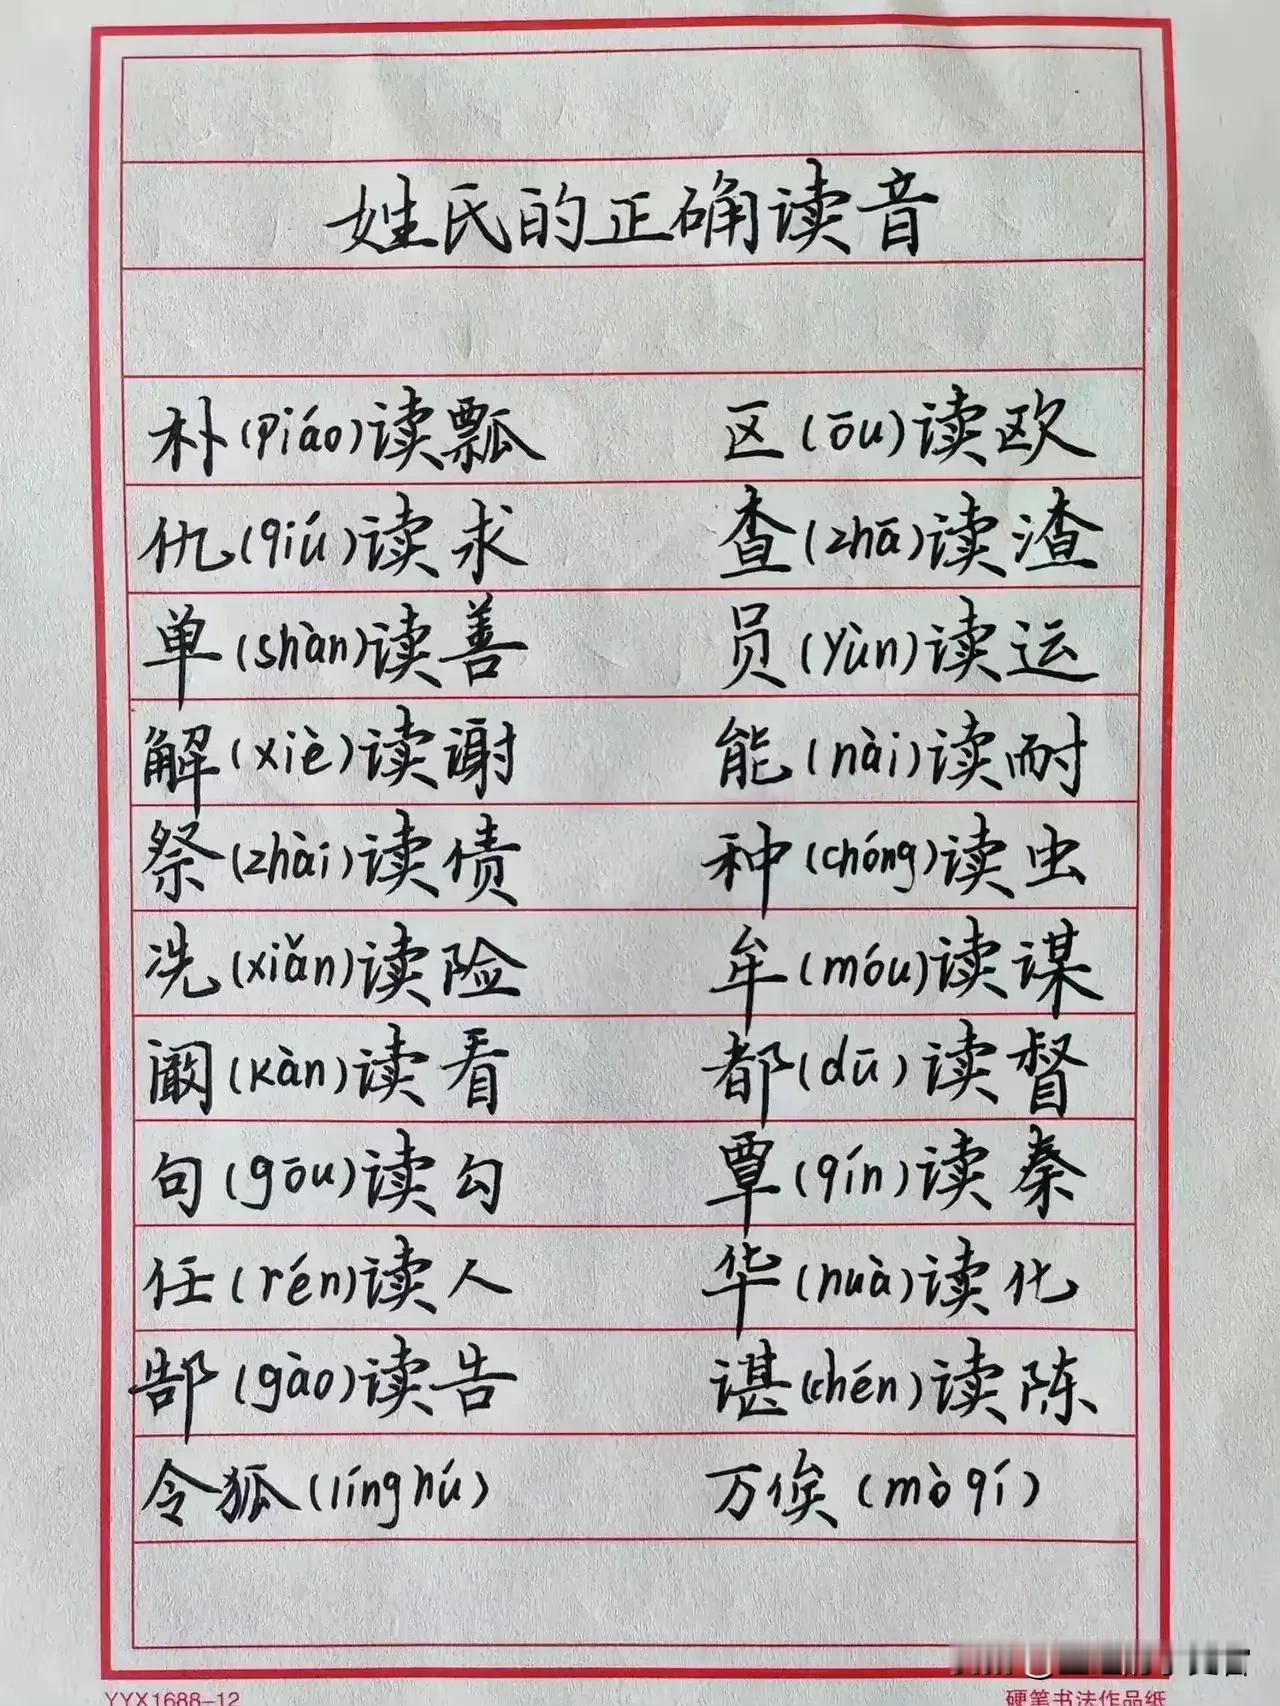 姓氏的正确读音
朴(piáo)读瓢 区(ōu)读欧
仇(qiú)读求 查(zhā)读渣
单(shàn)读善 员(yùn)读运
解(xiè)读谢 能(nài)读耐
祭(zhài)读债 种(chóng)读虫
冼(xiǎn)读险 牟(móu)读谋
阚(kàn)读看 都(dū)读督
句(gōu)读勾 覃(qín)读秦
任(rén)读人 华(huà)读化
郜(gào)读告 谌(chén)读陈
令狐(línghú) 万俟(mòqí)
YYX1688-12 硬笔书法作品纸